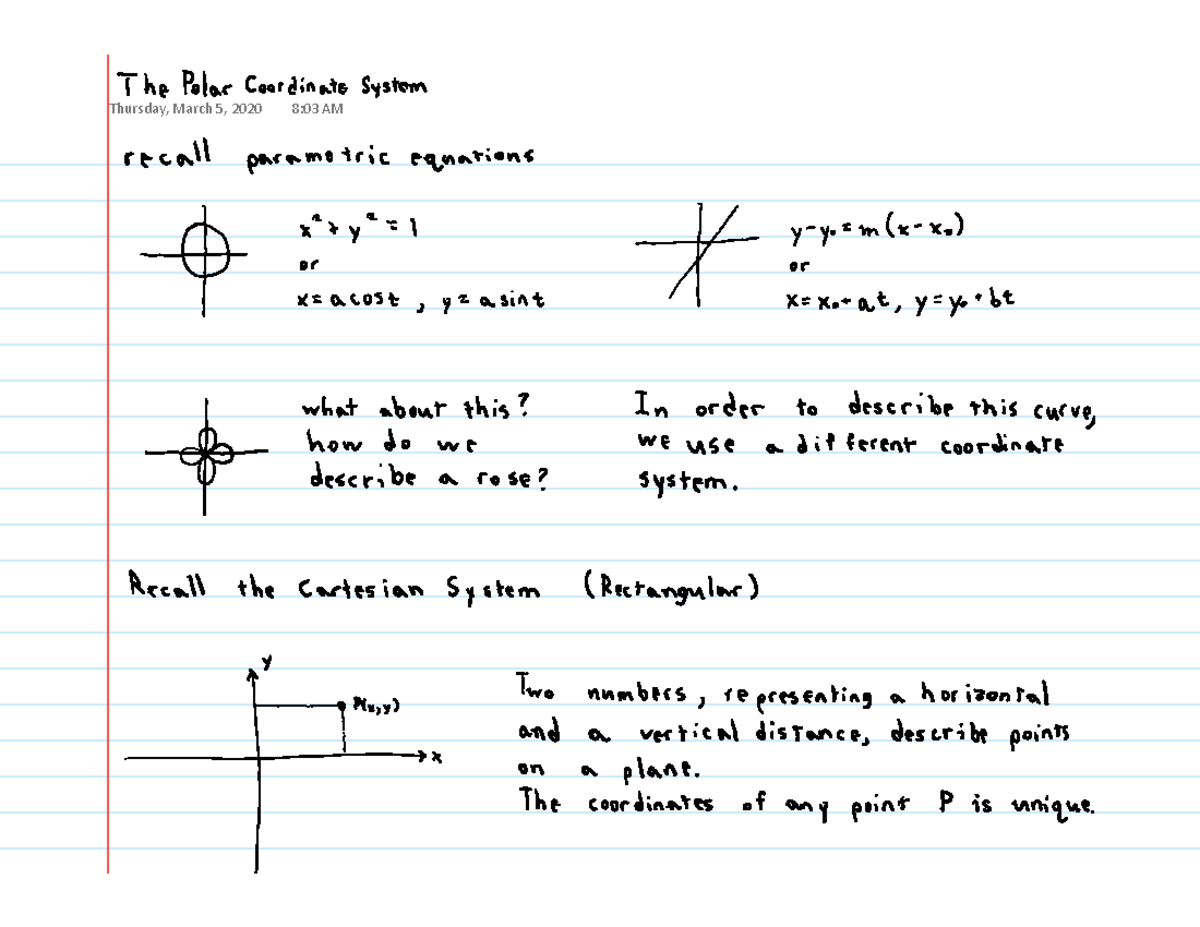 The Polar Coordinate System
Thursday, March 5, 2020 8:03 AM
recall parametric equations
x² + y² = 1
or
x = a cos t , y = a sin t
y - y₀ = m (x - x₀)
or
x = x₀ + at, y = y₀ + bt
what about this?
how do we
describe a rose?
In order to describe this curve,
we use a different coordinate
system.
Recall the Cartesian System (Rectangular)
y
P(x,y)
x
Two numbers, representing a horizontal
and a vertical distance, describe points
on a plane.
The coordinates of any point P is unique.